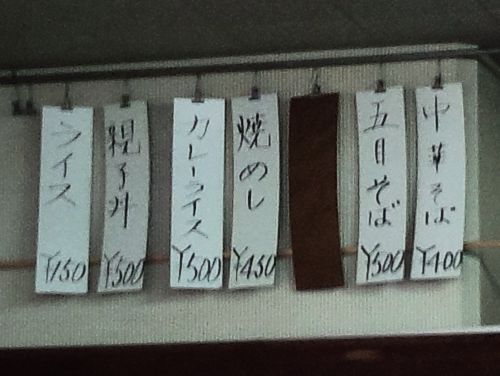 中華そば
¥400
五目そば
¥500
焼めし
¥450
カレーライス
¥500
親子丼
¥500
ライス
¥150